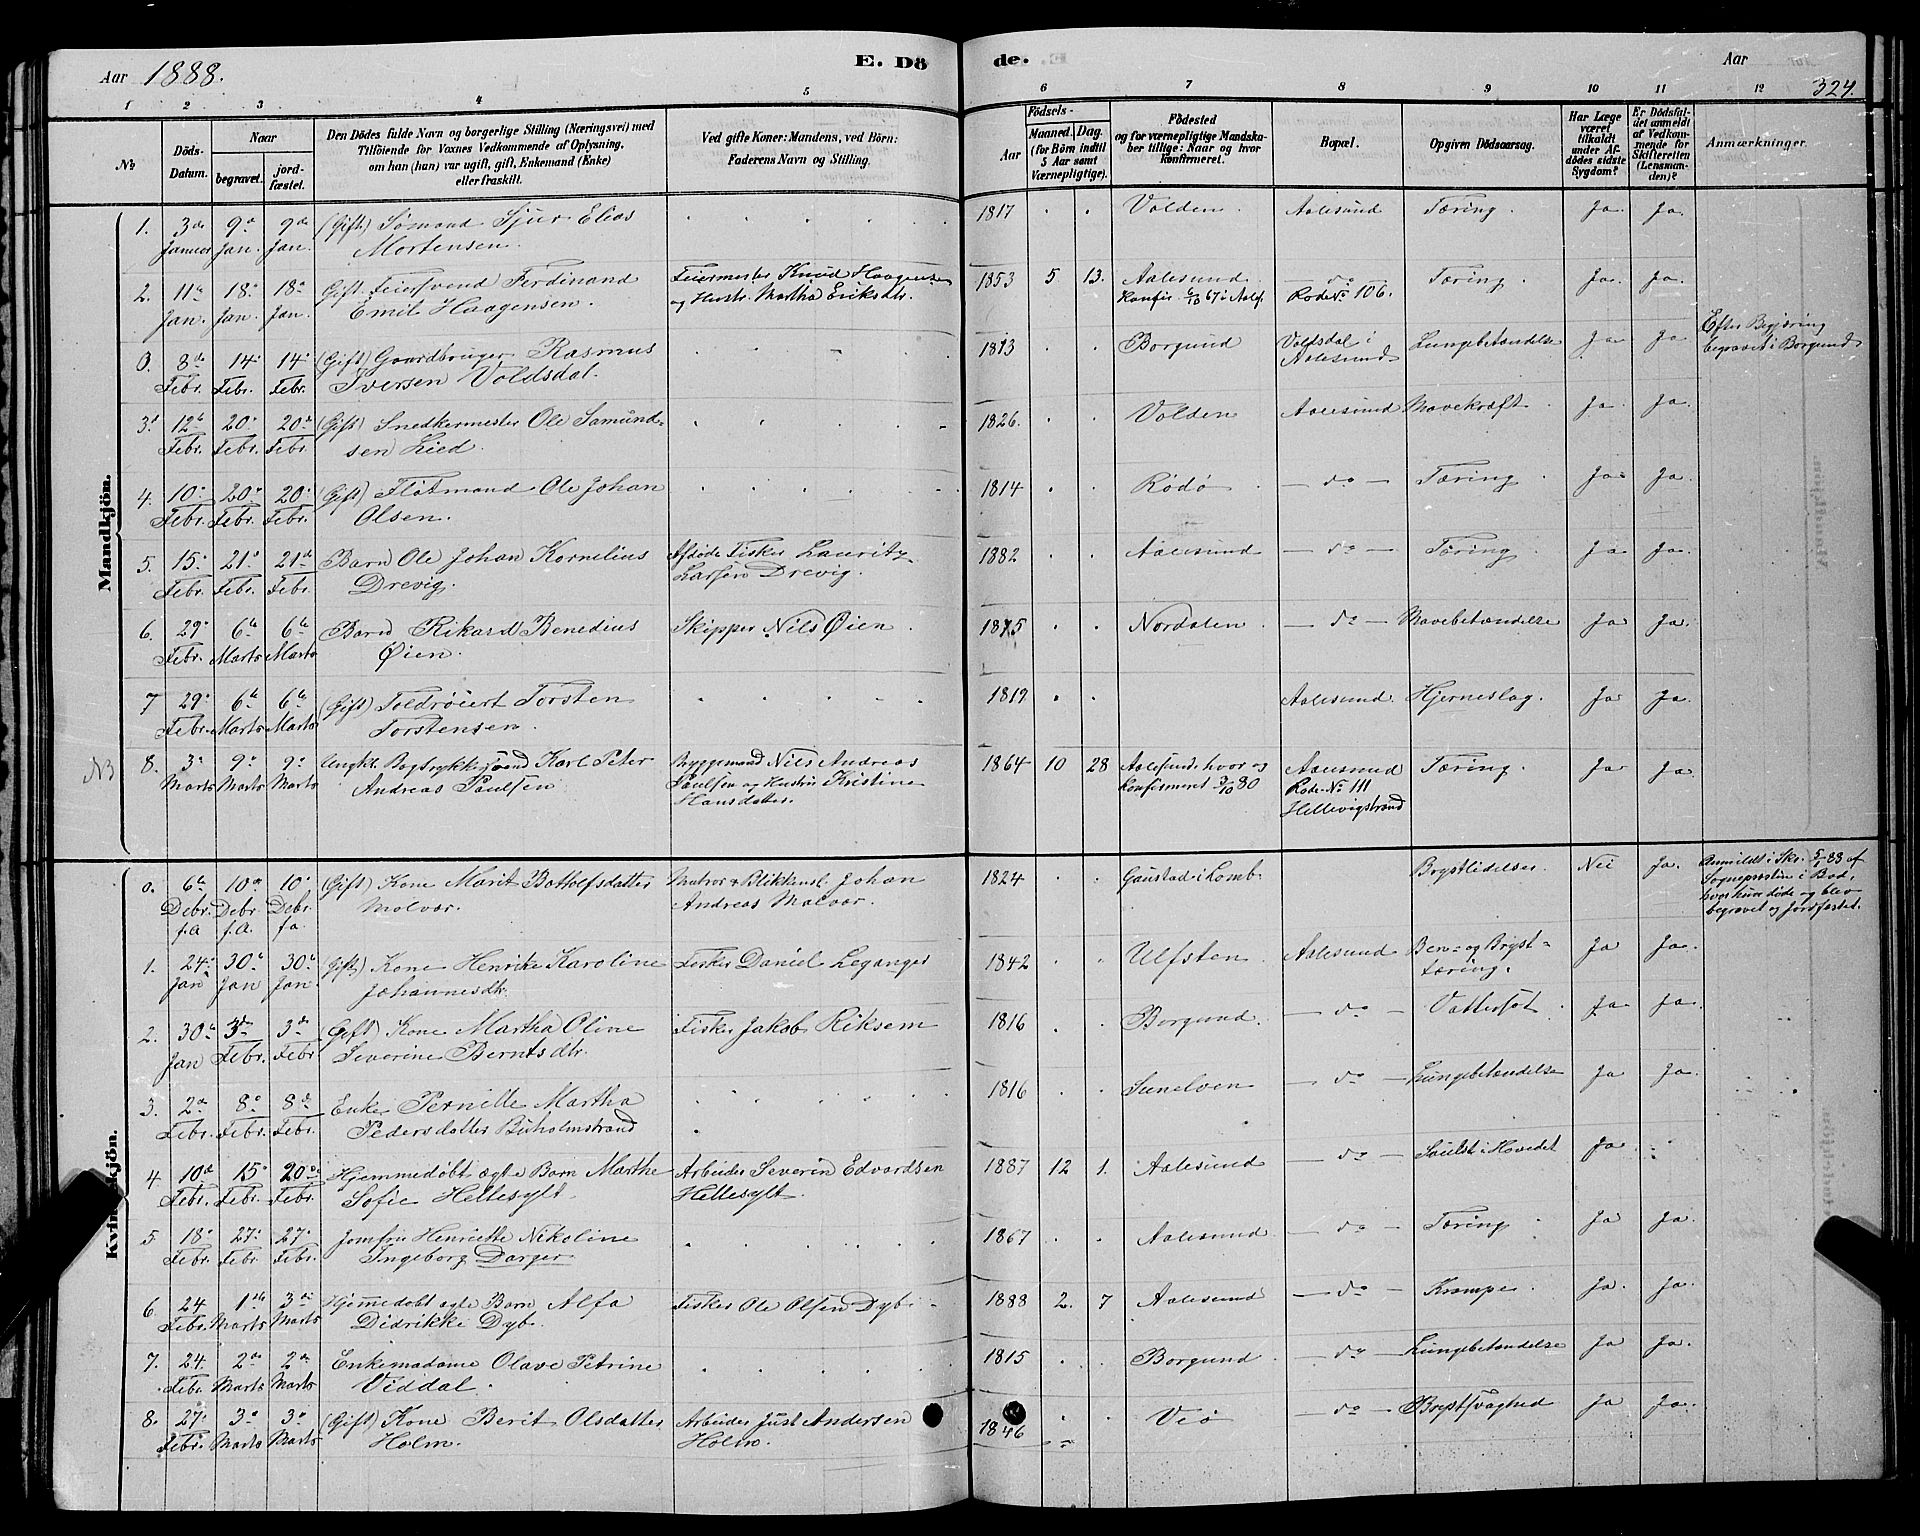 Aar 1888.
E. Dö
de.
Aar
324.
1 2 3 4 5 6 7 8 9 10 11 12
No
Döds-Datum.
Naar
begravet.
jordfæstet.
Den Dödes fulde Navn og borgerlige Stilling (Næringsvei) med
Tilföiende for Voxnes Vedkommende af Oplysning,
om han (hun) var ugift, gift, Enkemand (Enke)
eller fraskilt.
Ved gifte Koner: Mandens, ved Börn:
Faderens Navn og Stilling.
Födsels-
Aar
Maaned. Dag.
(for Börn indtil
5 Aar samt
Værnepligtige).
Födested
og for værnepligtige Mandska-
ber tillige: Naar og hvor
konfirmeret.
Bopæl.
Opgiven Dödsaarsag.
Har Læge
været
tilkaldt
under Af-
dödes sidste
Sygdom?
Er Dödsfal-
det anmeldt
af Vedkom-
mende for
Skifteretten
(Lensman-
den)?
Anmærkninger.
Mandkjön.
1. 3de 9de 9de (Gift) Sømand Sjur Elias 1817 Volden. Aalesund Tæring. Ja. Ja.
Januar Jan. Jan. Mortensen.
2. 11te 18de 18de Gift Feiersvend Ferdinand Feiermester Knud Haagensen 1853 5 13. Aalesund do Tæring. Ja. Ja.
Jan. Jan. Jan. Emil Haagensen. og Hustr. Martha Eriksdtr. Konfir. 6/10 67 i Aalss. Rode No 106.
0. 8de 14de 14de (Gift) Gaardbruger Rasmus 1813 Borgund Voldsdal i Lungebetændelse Ja Ja Efter Begjæring
Febr. Febr. Febr. Iversen Voldsdal. Aalesund begravet i Borgund
3. 12te 20de 20de (Gift) Snedkermester Ole Samund- 1826. Volden Aalesund Mavekræft. Ja. Ja.
Febr. Febr. Febr. sen Lied.
4. 10de 20de 20de (Gift) Fløtmand Ole Johan 1814 Rödö do Tæring. Ja Ja.
Febr. Febr. Febr. Olsen.
5. 15de 21de 21de Barn Ole Johan Kornelius Afdøde Fisker Lauritz 1882 Aalesund do Tæring Ja Ja.
Febr. Febr. Febr. Drevig. Larsen Drevig.
6. 29de 6te 6te Barn Rikard Benedius Skipper Nils Øien. 1875 Nordalen do Mavebetændelse Ja Ja.
Febr. Marts Marts Øien.
7 29de 6te 6te (Gift) Toldrøiert Torsten 1819 Aalesund. Hjerneslag. Ja Ja.
Febr. Marts Marts Torstensen.
8. 3de 9de 9de Ungkl. Bogtrykkersvend Karl Peter Byggemand Nils Andreas 1864 10 28 Aalesund, hvor og Aalesund Tæring. Ja Ja
Marts Marts Marts Andreas Paulsen Paulsen og Hustru Kristine konfirmeret 3/10 80 Rode No 111
Hansdatter. Hellevigstrand
Kvindekjön.
0. 6te 10de 10de (Gift) Kone Marit Botholfsdatter Matros & Blikkensl. Johan 1824 Gaustad i Lomb. Brystlidelse. Nei Ja. Anmeldt i Skr. 5/1 88 af
Debr. Debr. Debr. Malvar. Andreas Malvar. Sognepresten i Bod,
f.A f.A. f.a. hvor hun døde og blev
begravet og jordfæstet.
1. 24de 30te 30te (Gift) Kone Henrike Karoline Fisker Daniel Leganger 1842 Ulfsten Aalesund Ben- og Bryst- Ja Ja.
Jan Jan Jan. Johannesdtr. tæring.
2. 30te 3de 3de (Gift) Kone Martha Oline Fisker Jakob Riksem 1816 Borgund. do Vattersot. Ja Ja.
Jan Febr. Febr Severine Berntsdtr.
3. 2de 8de 8de Enke Pernille Martha 1816 Sunelven do Lungebetændelse Ja Ja.
Febr. Febr. Febr. Pedersdatter Buholmstrand
4. 10de 15de 20de Hjemmedøbt ægte Barn Marthe Arbeider Severin Edvardsen 1887 12 1. Aalesund do Saulst i Hovedet Ja
Febr. Febr. Febr. Sofie Hellesylt. Hellesylt.
5 18de 27de 27de Jomfru Henriette Nikoline 1867 Aalesund. do Tæring Ja Ja
Febr. Febr. Febr. Ingeborg Darger
6. 24 1ste 3de Hjemmedøbt ægte Barn Alfa Fisker Ole Olsen Dyb 1888 2. 7 Aalesund do Krampe Ja. Ja
Febr. Marts Marts Didrikke Dyb.
7. 24. 2de 2de Enkemadame Olave Petrine 1815 Borgund do Lungebetændelse Ja Ja
Febr Marts Marts Viddal.
8. 27de 3de 3de (Gift) Kone Berit Olsdatter Arbeider Just Andersen 1846 Veö do Brystsvaghed Ja Ja
Febr. Marts Marts Holm. Holm.